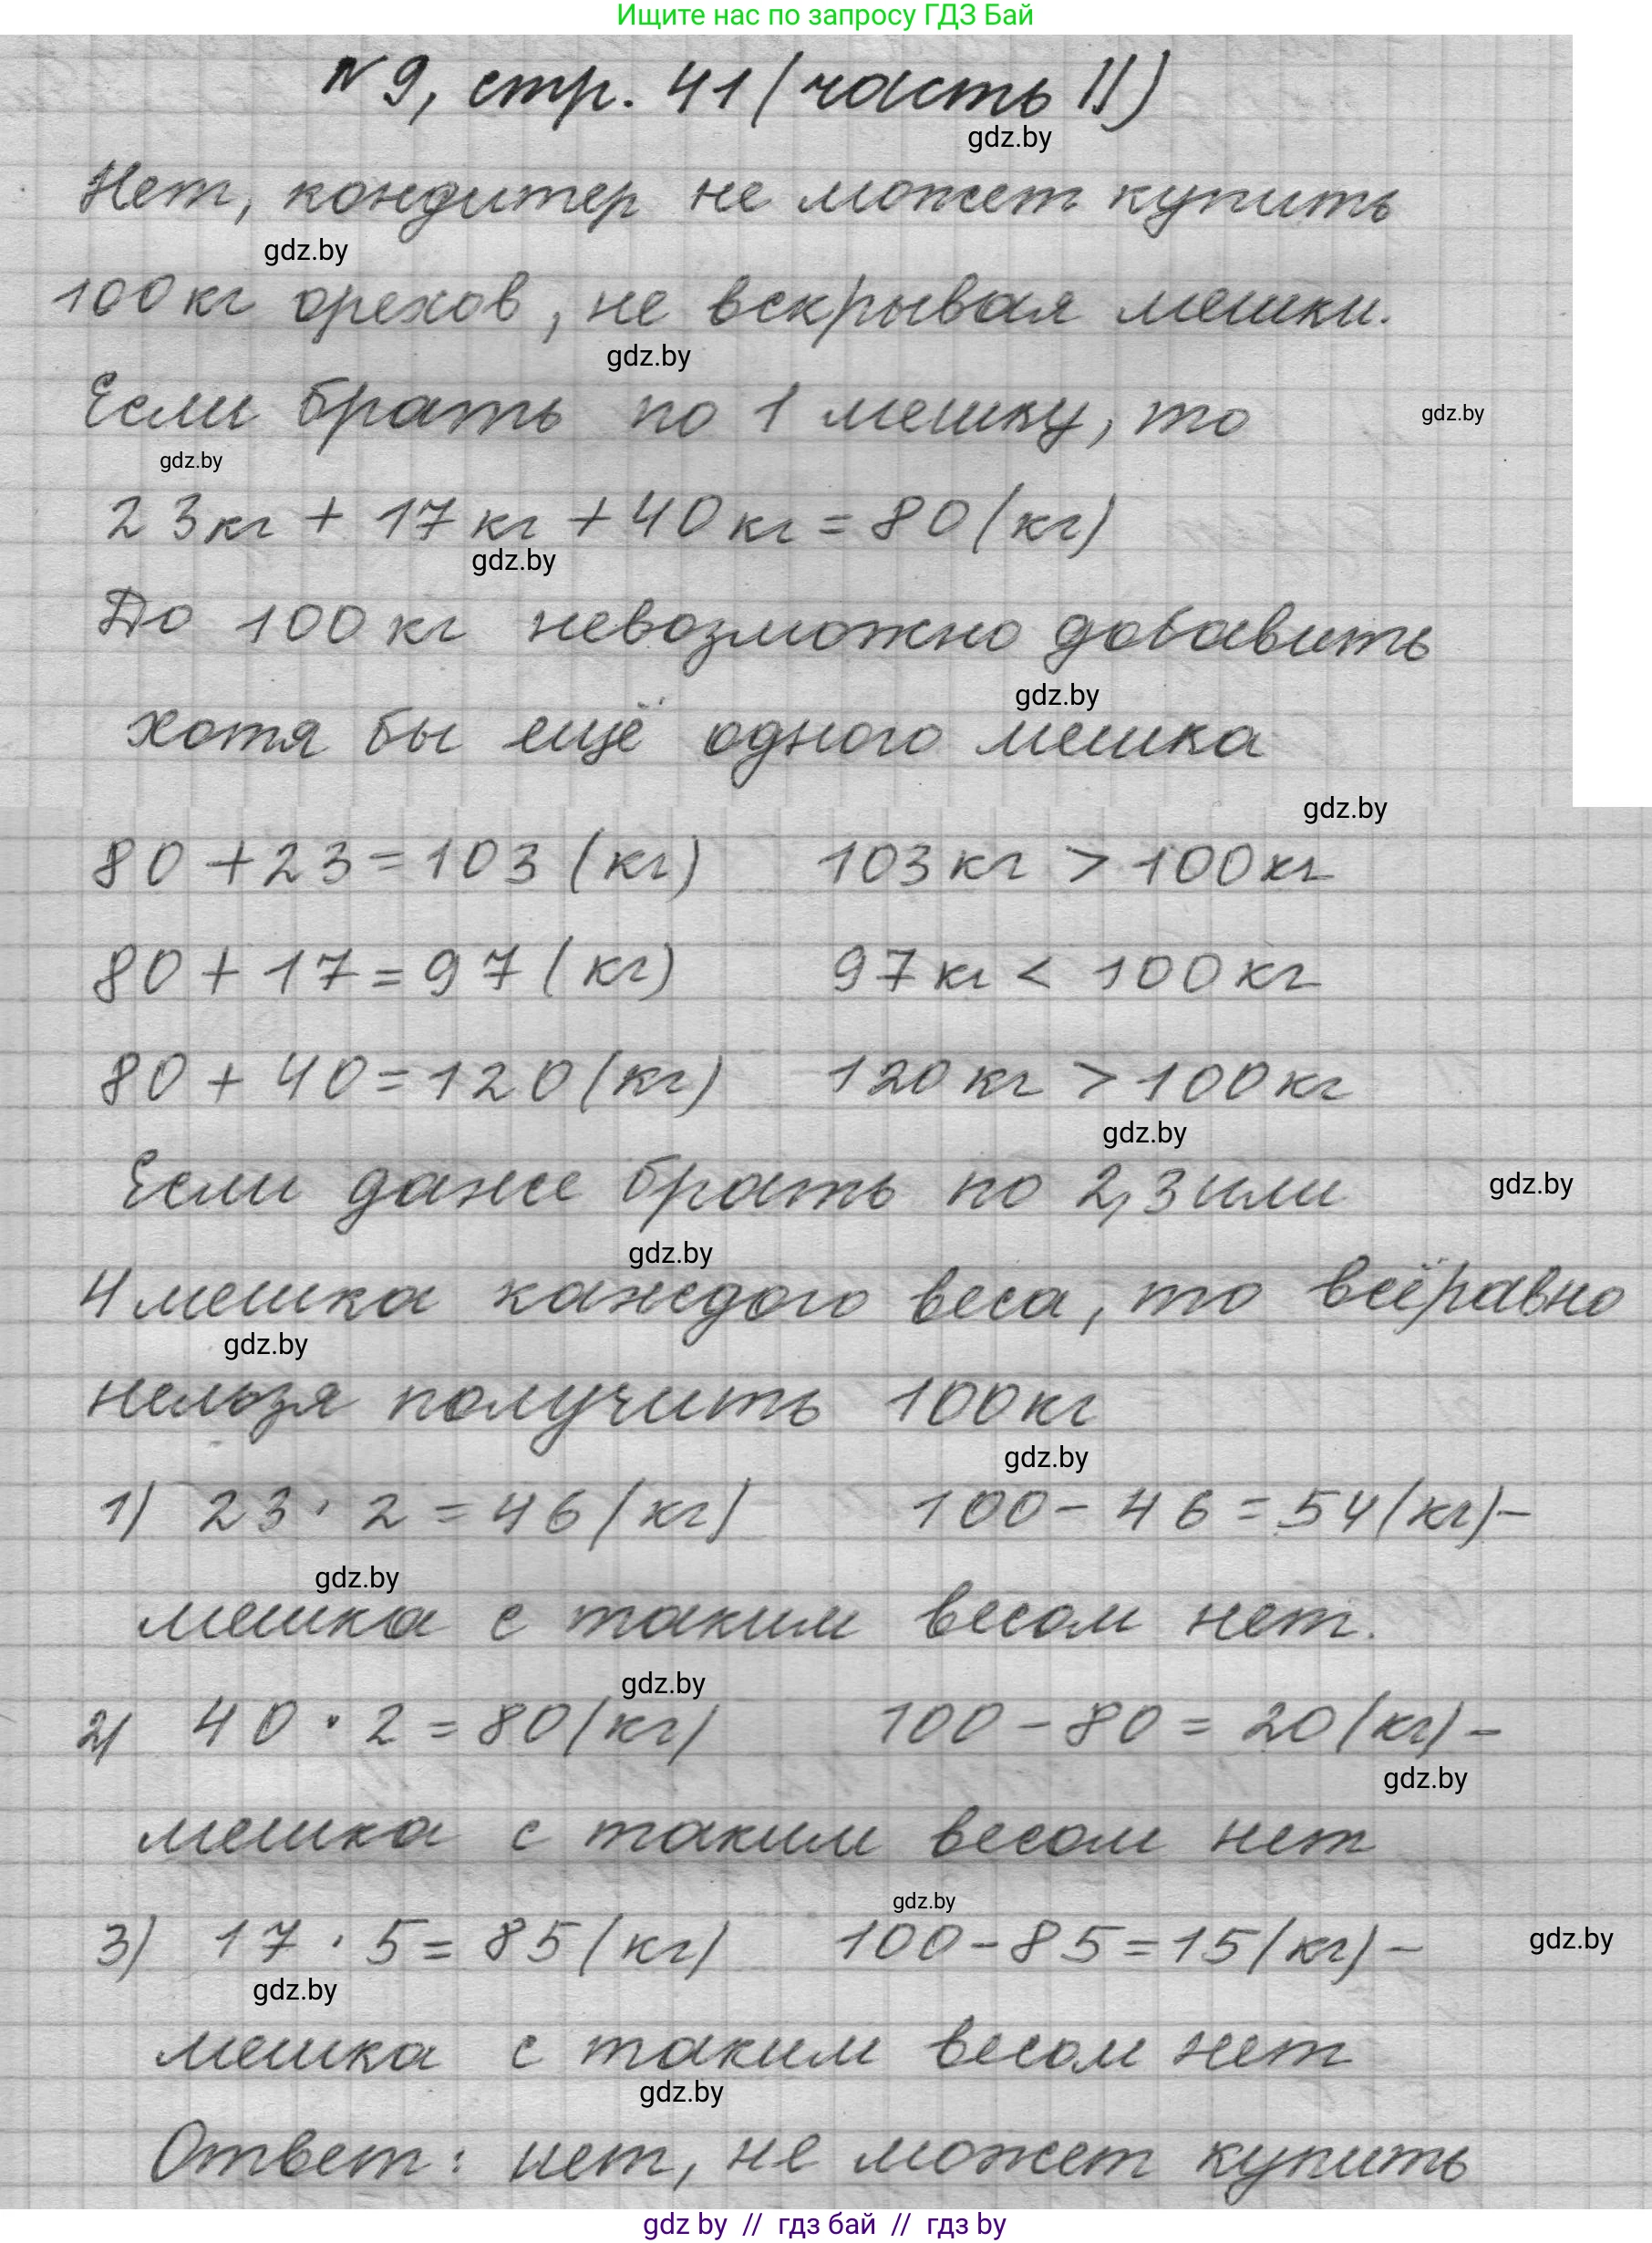 Ищите нас по запросу ГДЗ Бай
№9, стр. 41 (часть II)
gdz.by
Нет, кондитер не может купить
gdz.by
100 кг орехов, не вскрывая мешки.
gdz.by
Если брать по 1 мешку, то
gdz.by
gdz.by
23 кг + 17 кг + 40 кг = 80 (кг)
gdz.by
До 100 кг невозможно добавить
gdz.by
хотя бы ещё одного мешка
gdz.by
80 + 23 = 103 (кг) 103 кг > 100 кг
80 + 17 = 97 (кг) 97 кг < 100 кг
80 + 40 = 120 (кг) 120 кг > 100 кг
gdz.by
Если даже брать по 2, 3 или
gdz.by
gdz.by
4 мешка каждого веса, то всё равно
gdz.by
нельзя получить 100 кг
gdz.by
1) 23 · 2 = 46 (кг) 100 - 46 = 54 (кг) -
gdz.by
мешка с таким весом нет.
gdz.by
2) 40 · 2 = 80 (кг) 100 - 80 = 20 (кг) -
gdz.by
мешка с таким весом нет
gdz.by
3) 17 · 5 = 85 (кг) 100 - 85 = 15 (кг) -
gdz.by
gdz.by
мешка с таким весом нет
gdz.by
Ответ: нет, не может купить
gdz by // гдз бай // гдз by